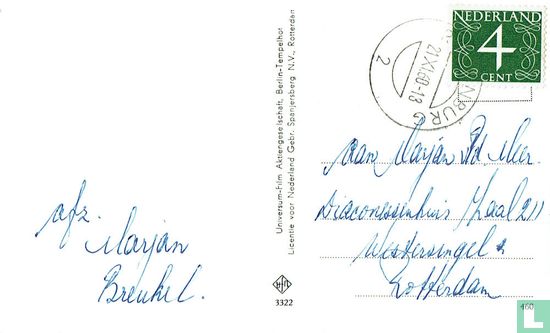 afz.
Marjan
Breukel.
Universum-Film Aktiengesellschaft, Berlin-Tempelhof
Licentie voor Nederland Gebr. Spanjersberg N.V., Rotterdam
3322
NEDERLAND
4
CENT
21.XI.60-13
NBURG
2
aan Marjan v.d. Meer
Diaconessenhuis Zaal 211
Westersingel
Rotterdam
460
catawiki